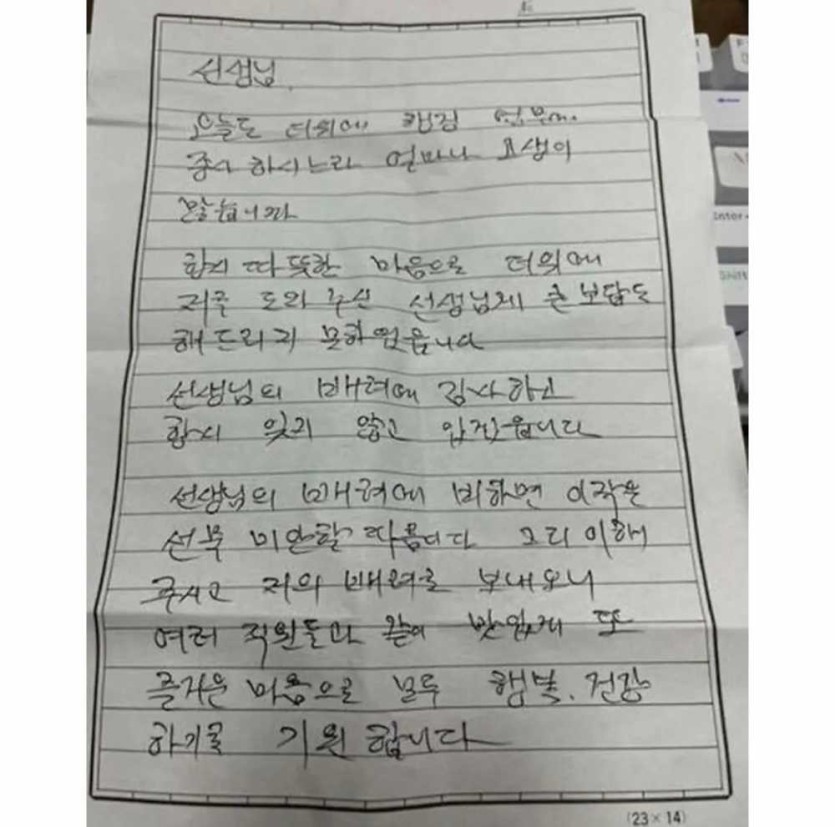 선생님
오늘도 더위에 행정 업무에
종사 하시느라 얼마나 고생이
많습니까
항시 따뜻한 마음으로 더위에
저를 도와주신 선생님께 큰 보답도
해드리지 못하였읍니다
선생님의 배려에 감사하고
항시 잊지 않고 있읍니다
선생님의 배려에 비하면 이 작은
선물 미안할 따름니다 그리 이해
주시고 저의 배려로 보내오니
여러 직원들과 같이 맛있게 또
즐거운 마음으로 모두 행복, 건강
하기를 기원합니다
(23×14)